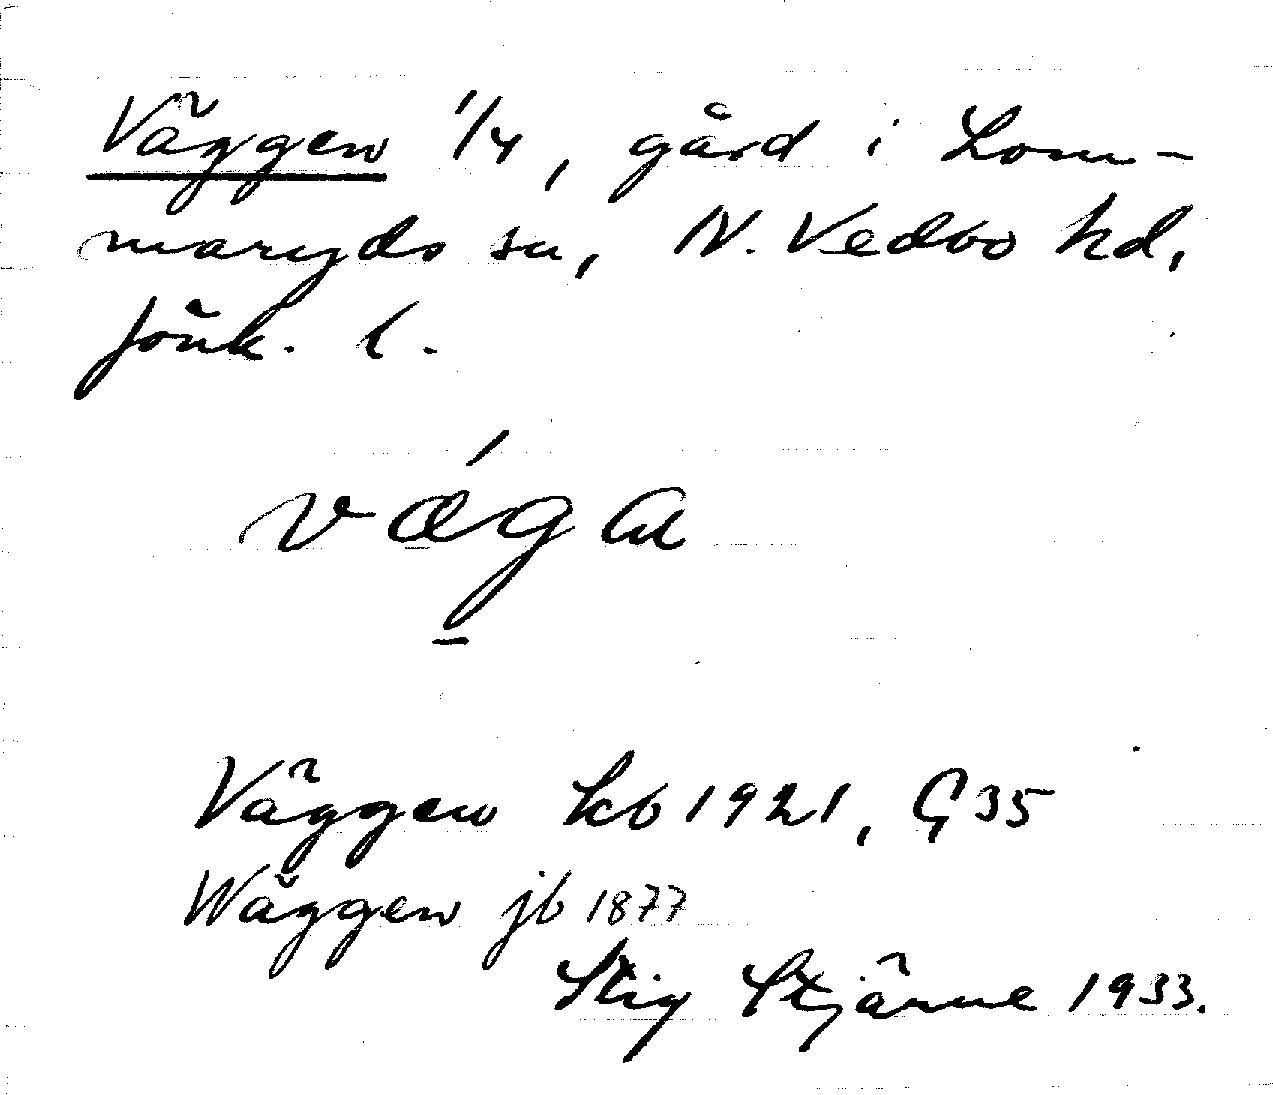 Väggen 1/4, gård i Lom-
maryds sn, N. Vedbo hd,
Jönk. l.
vǽga
Väggen kb 1921, G 35
Wäggen jb 1877
Stig Stjärne 1933.